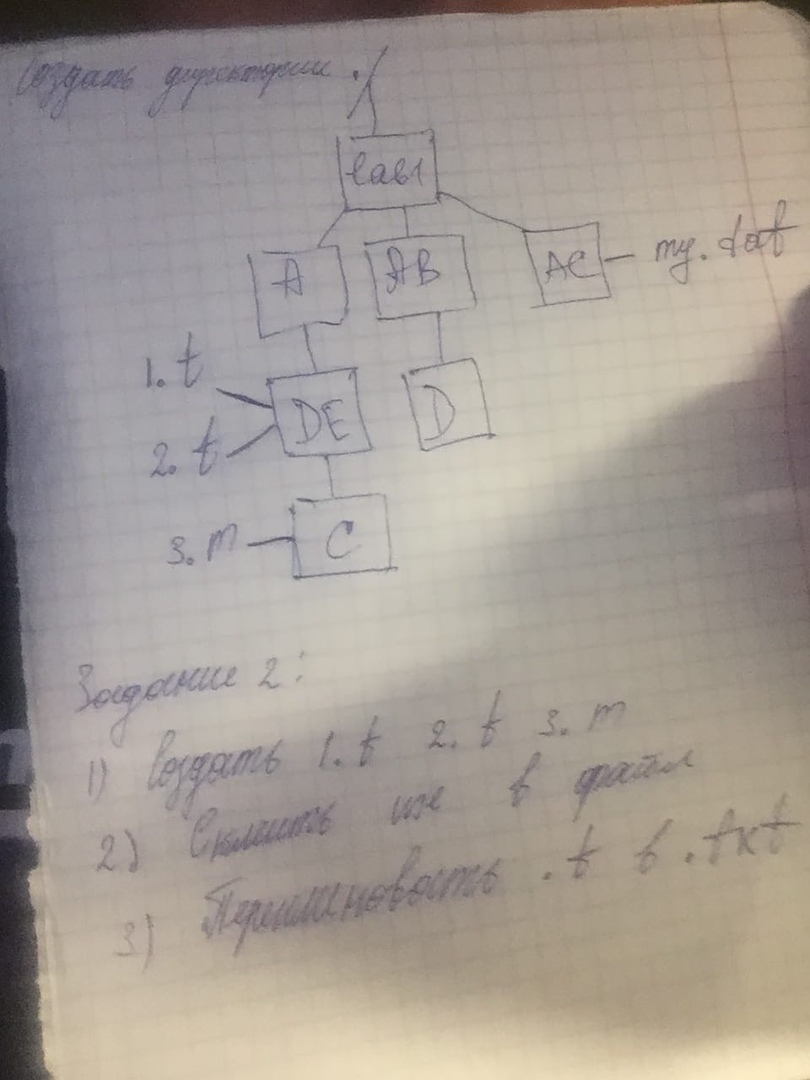 Создать директории ./
lab1
A AB AC - my.dat
1. t
DE D
2. t
3. m - C
Задание 2:
1) Создать 1. t 2. t 3. m
2) Склеить их в файл
3) Переименовать .t в .txt